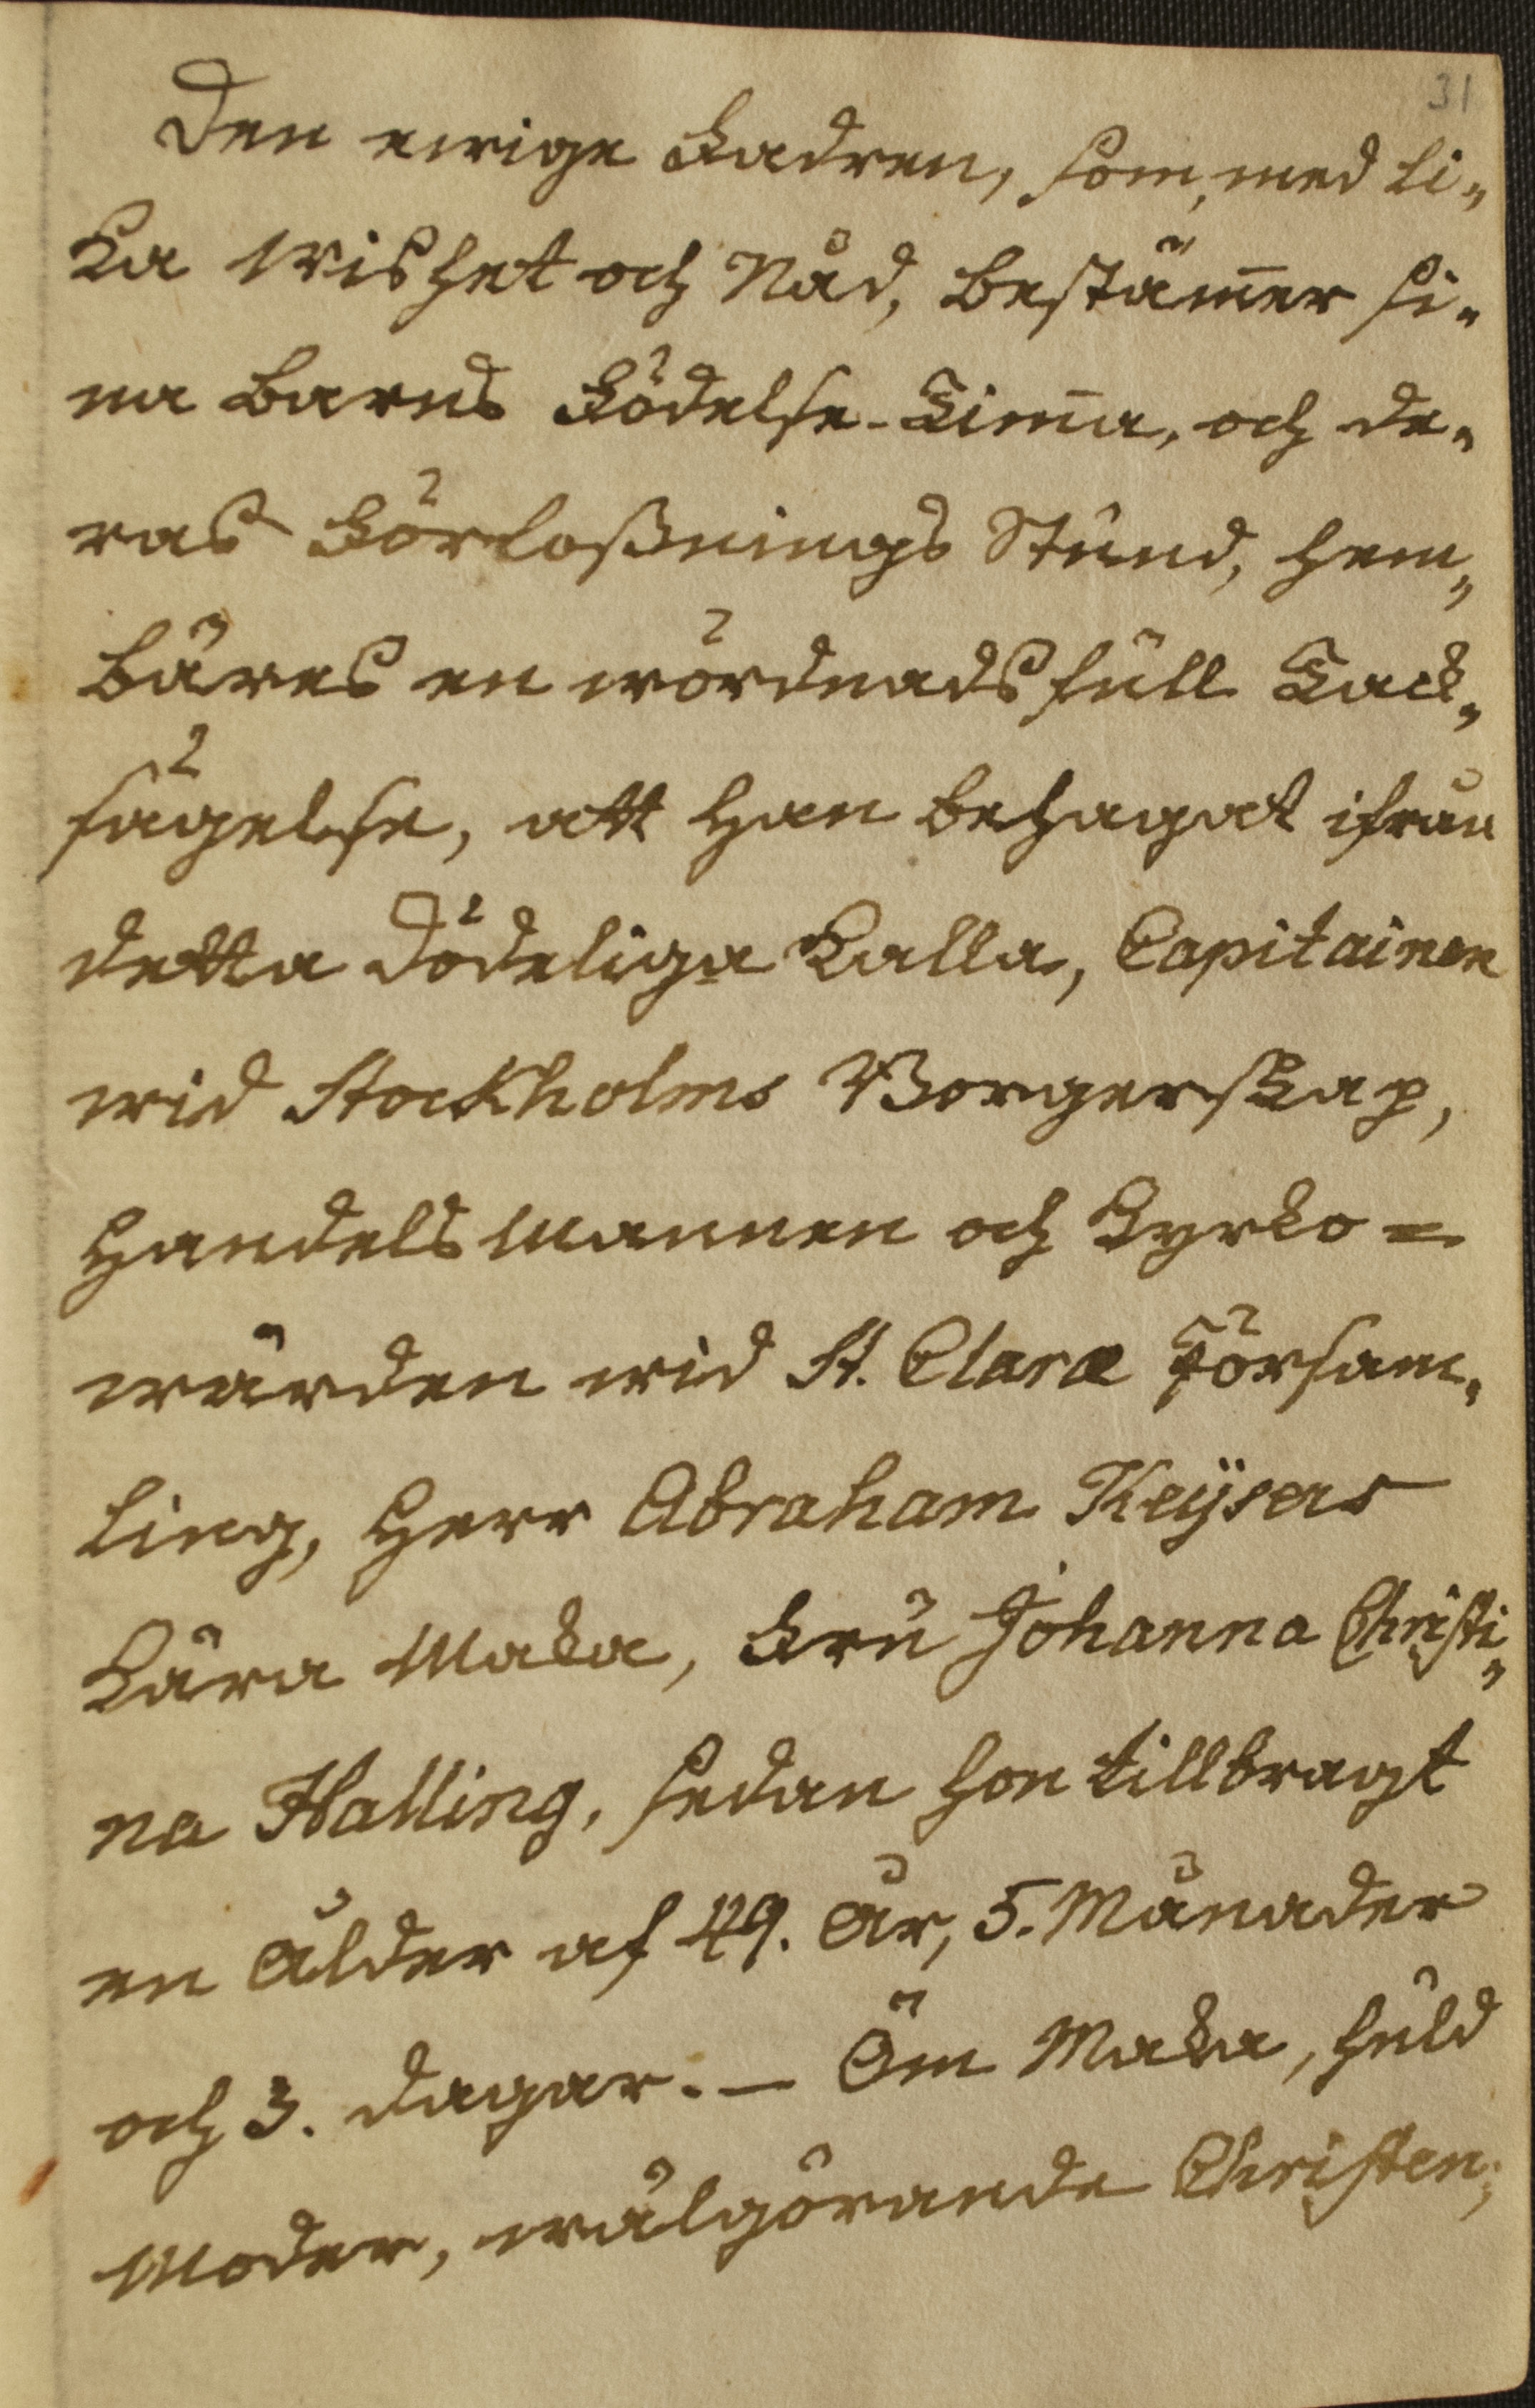 31
Den ewige Fadren, som, med li„
ka wishet och Nåd, bestäm̄er si„
na Barns Födelse-Tim̄a, och de„
ras Förloßnings Stund, hem„
bäres en wördnadsfull Tack„
sägelse, att Han behagat ifrån
detta dödeliga kalla, Capitainen
wid Stockholms Borgerskap,
Handelsmannen och Kyrko=
wärden wid St. Claræ Försam„
ling, Herr Abraham Keÿsers
kära Maka, Fru Johanna Christi„
na Halling, sedan hon tillbragt
en ålder af 49. år, 5. Månader
och 3. dagar. — Öm Maka, huld
Moder, wälgörande Christen;